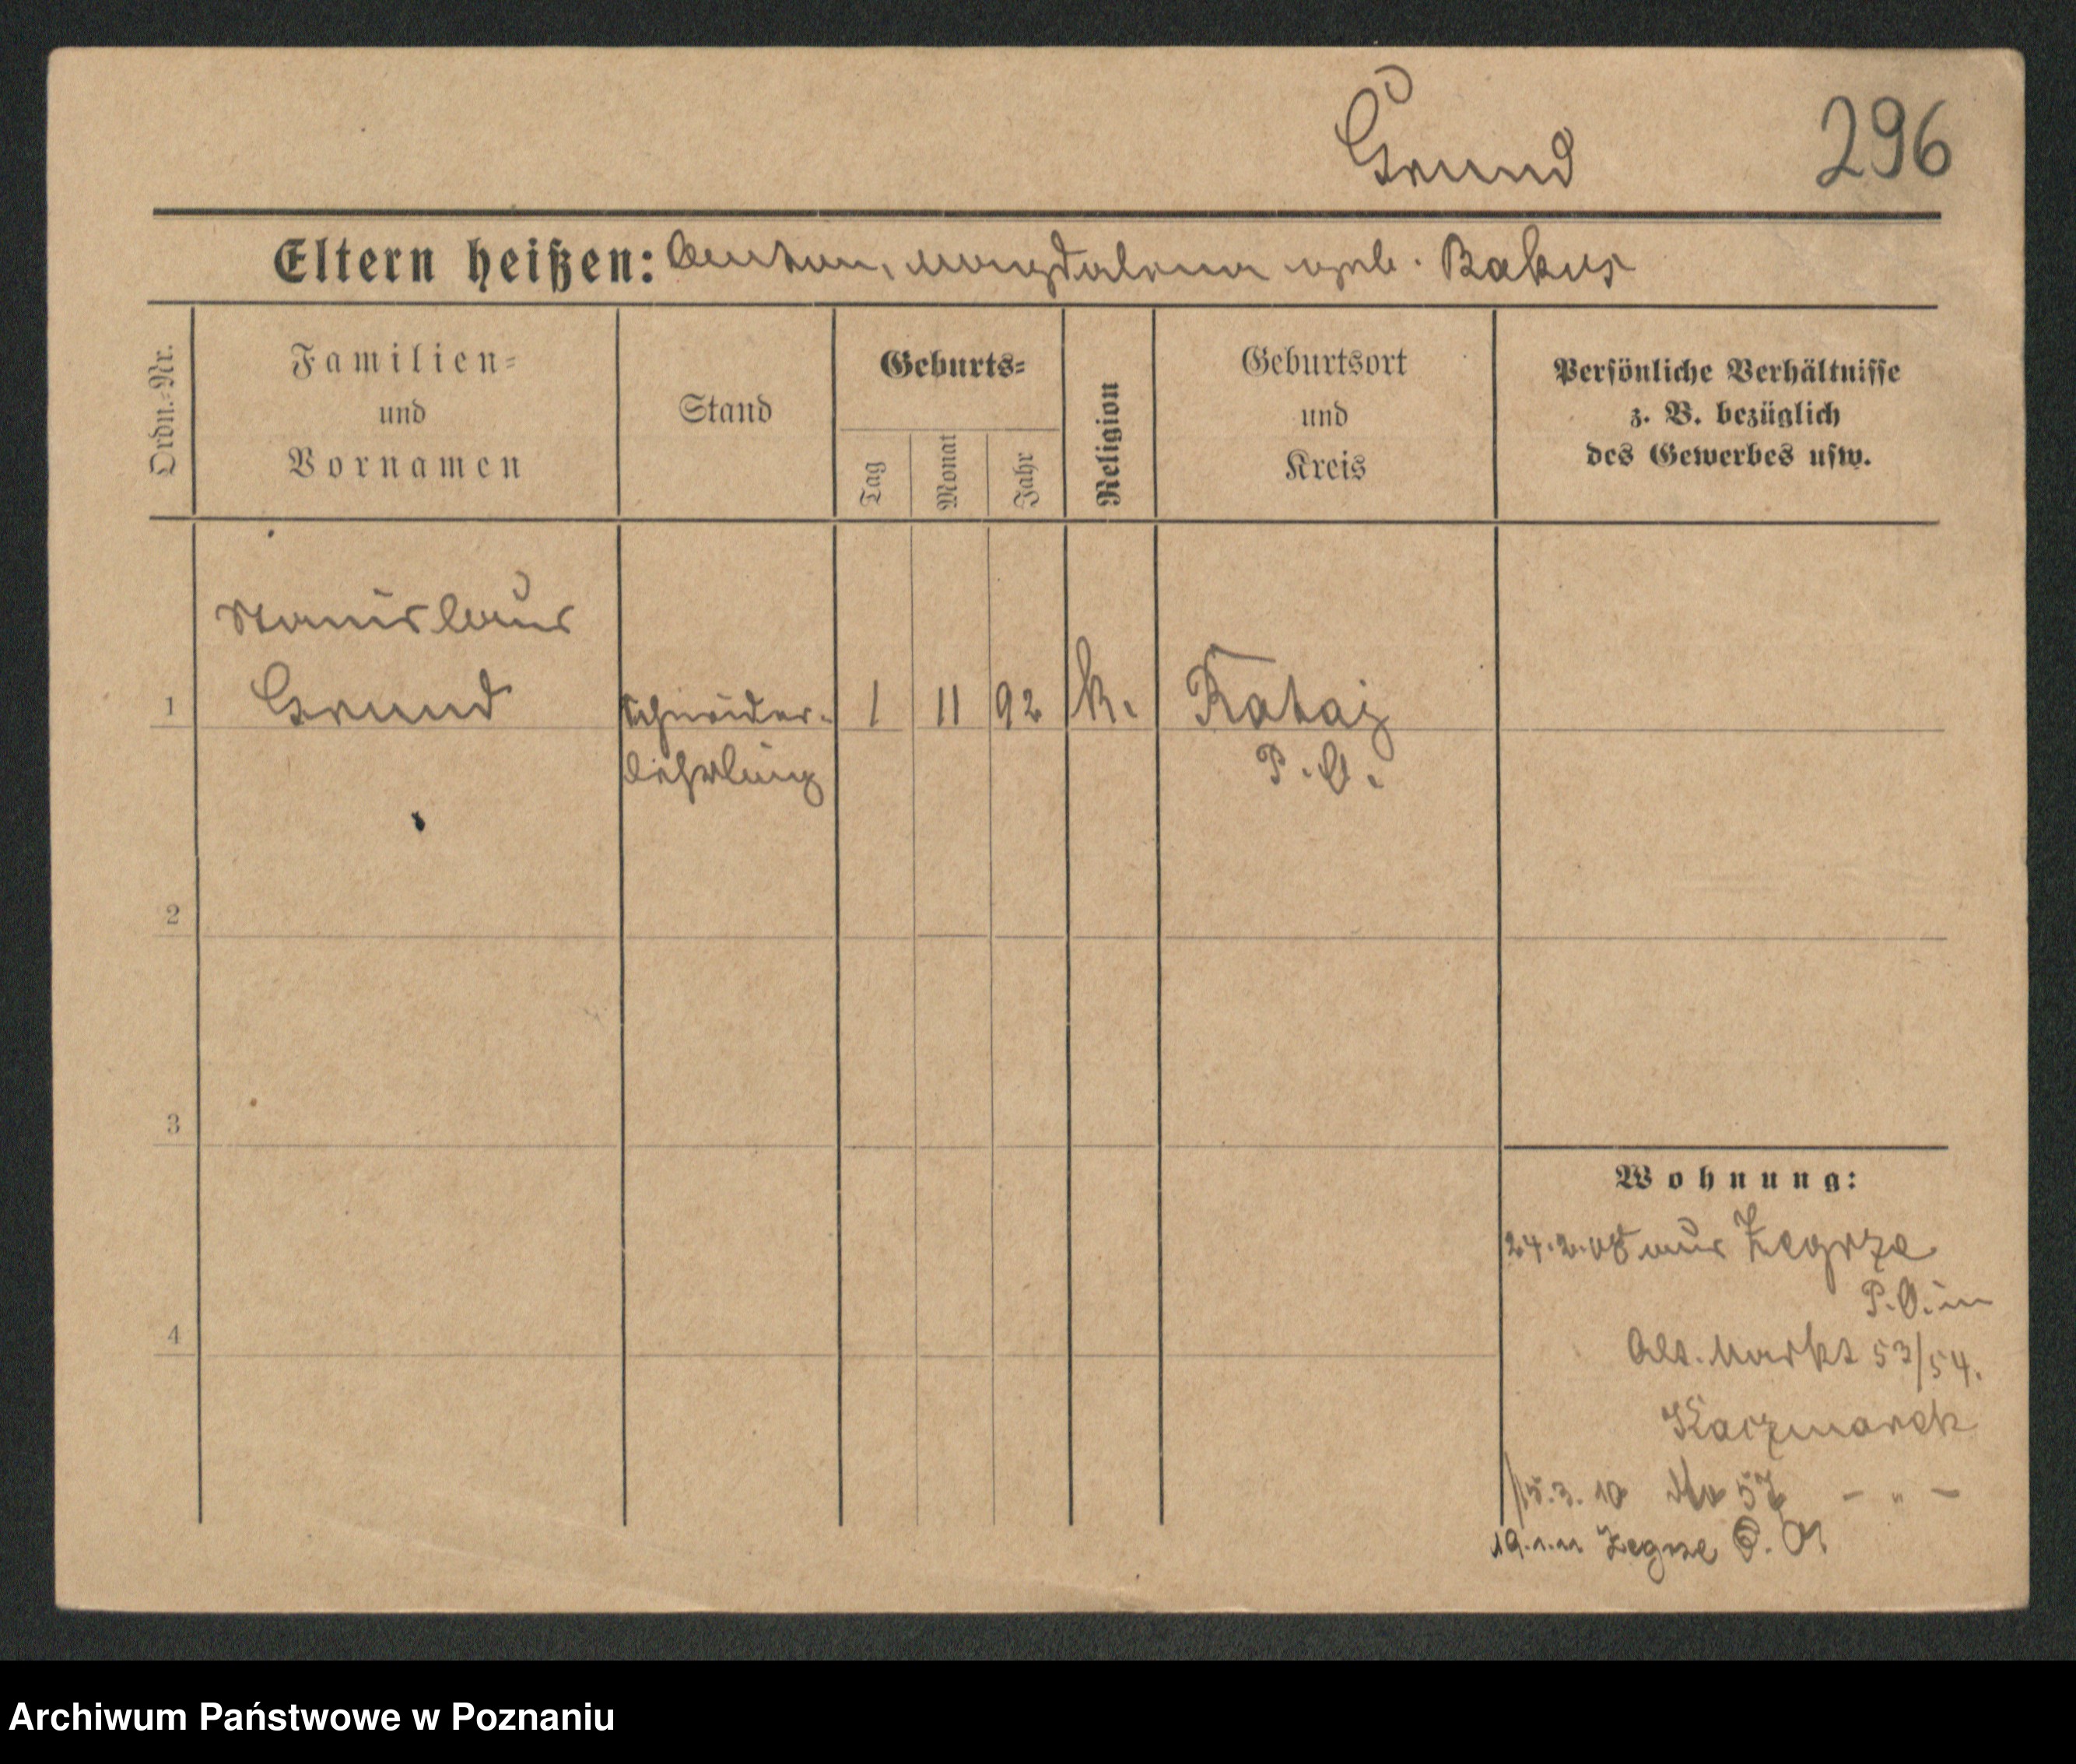 Grund 296
Eltern heißen: Anton, Magdalena geb. Bakus
Ordn.-Nr.
Familien-
und
Vornamen
Stand
Geburts-
Tag
Monat
Jahr
Religion
Geburtsort
und
Kreis
Persönliche Verhältnisse
z. B. bezüglich
des Gewerbes usw.
Stanislaus
1 Grund Schneider- 1 11 92 k. Rataj
lehrling P. O.
2
3
4
Wohnung:
24.2.08 aus Zegrze
P. O. in
Alt. Markt 53/54.
Kaczmarek
15.3.10 57 - " -
19.1.11 Zegrze O.
Archiwum Państwowe w Poznaniu